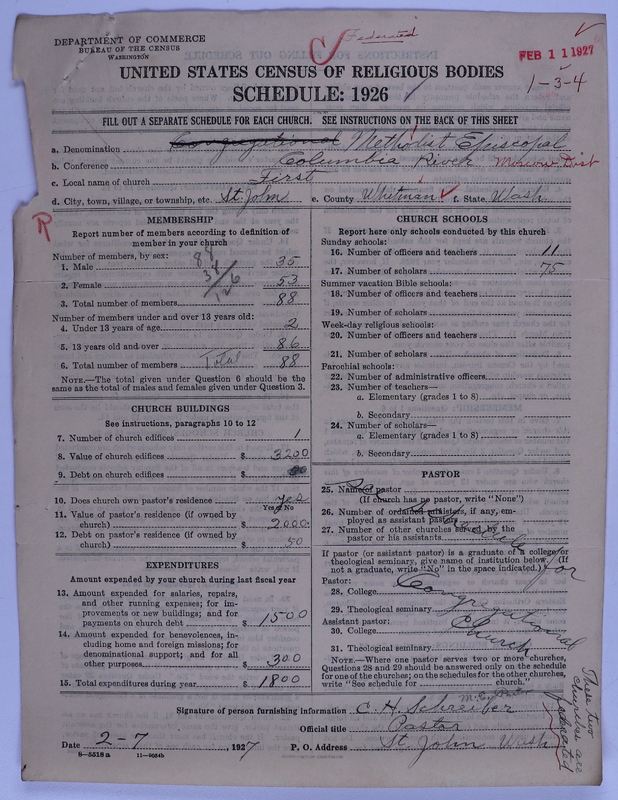 Federated
DEPARTMENT OF COMMERCE
BUREAU OF THE CENSUS
WASHINGTON
FEB 11 1927
1-3-4
UNITED STATES CENSUS OF RELIGIOUS BODIES
SCHEDULE: 1926
FILL OUT A SEPARATE SCHEDULE FOR EACH CHURCH. SEE INSTRUCTIONS ON THE BACK OF THIS SHEET
a. Denomination Congregational Methodist Episcopal
b. Conference Columbia River Moscow Dist
c. Local name of church First
d. City, town, village, or township, etc. St. John e. County Whitman f. State Wash
MEMBERSHIP
Report number of members according to definition of
member in your church
Number of members, by sex:
1. Male 35
2. Female 53
3. Total number of members 88
88
38
126
Number of members under and over 13 years old:
4. Under 13 years of age 2
5. 13 years old and over 86
6. Total number of members Total 88
NOTE.—The total given under Question 6 should be the
same as the total of males and females given under Question 3.
CHURCH BUILDINGS
See instructions, paragraphs 10 to 12
7. Number of church edifices 1
8. Value of church edifices $ 3200
9. Debt on church edifices $
10. Does church own pastor's residence yes
Yes or No
11. Value of pastor's residence (if owned by
church) $ 2000
12. Debt on pastor's residence (if owned by
church) $ 50
EXPENDITURES
Amount expended by your church during last fiscal year
13. Amount expended for salaries, repairs,
and other running expenses; for im-
provements or new buildings; and for
payments on church debt $ 1500
14. Amount expended for benevolences, in-
cluding home and foreign missions; for
denominational support; and for all
other purposes $ 300
15. Total expenditures during year $ 1800
CHURCH SCHOOLS
Report here only schools conducted by this church
Sunday schools:
16. Number of officers and teachers 11
17. Number of scholars 75
Summer vacation Bible schools:
18. Number of officers and teachers
19. Number of scholars
Week-day religious schools:
20. Number of officers and teachers
21. Number of scholars
Parochial schools:
22. Number of administrative officers
23. Number of teachers—
a. Elementary (grades 1 to 8)
b. Secondary
24. Number of scholars—
a. Elementary (grades 1 to 8)
b. Secondary
PASTOR
25. Name of pastor
(If church has no pastor, write "None")
26. Number of ordained ministers, if any, em-
ployed as assistant pastor
27. Number of other churches served by the
pastor or his assistants
If pastor (or assistant pastor) is a graduate of a college or
theological seminary, give name of institution below. (If
not a graduate, write "No" in the space indicated.)
Pastor:
28. College
29. Theological seminary
Assistant pastor:
30. College
31. Theological seminary
for
Congregational
Church
NOTE.—Where one pastor serves two or more churches,
Questions 28 and 29 should be answered only on the schedule
for one of the churches; on the schedules for the other churches,
write "See schedule for ........ church."
These two
churches are
federated
Signature of person furnishing information C. H. Schreiber
Official title Pastor
Date 2-7, 1927 P. O. Address St. John Wash
8—5518a 11—9054b